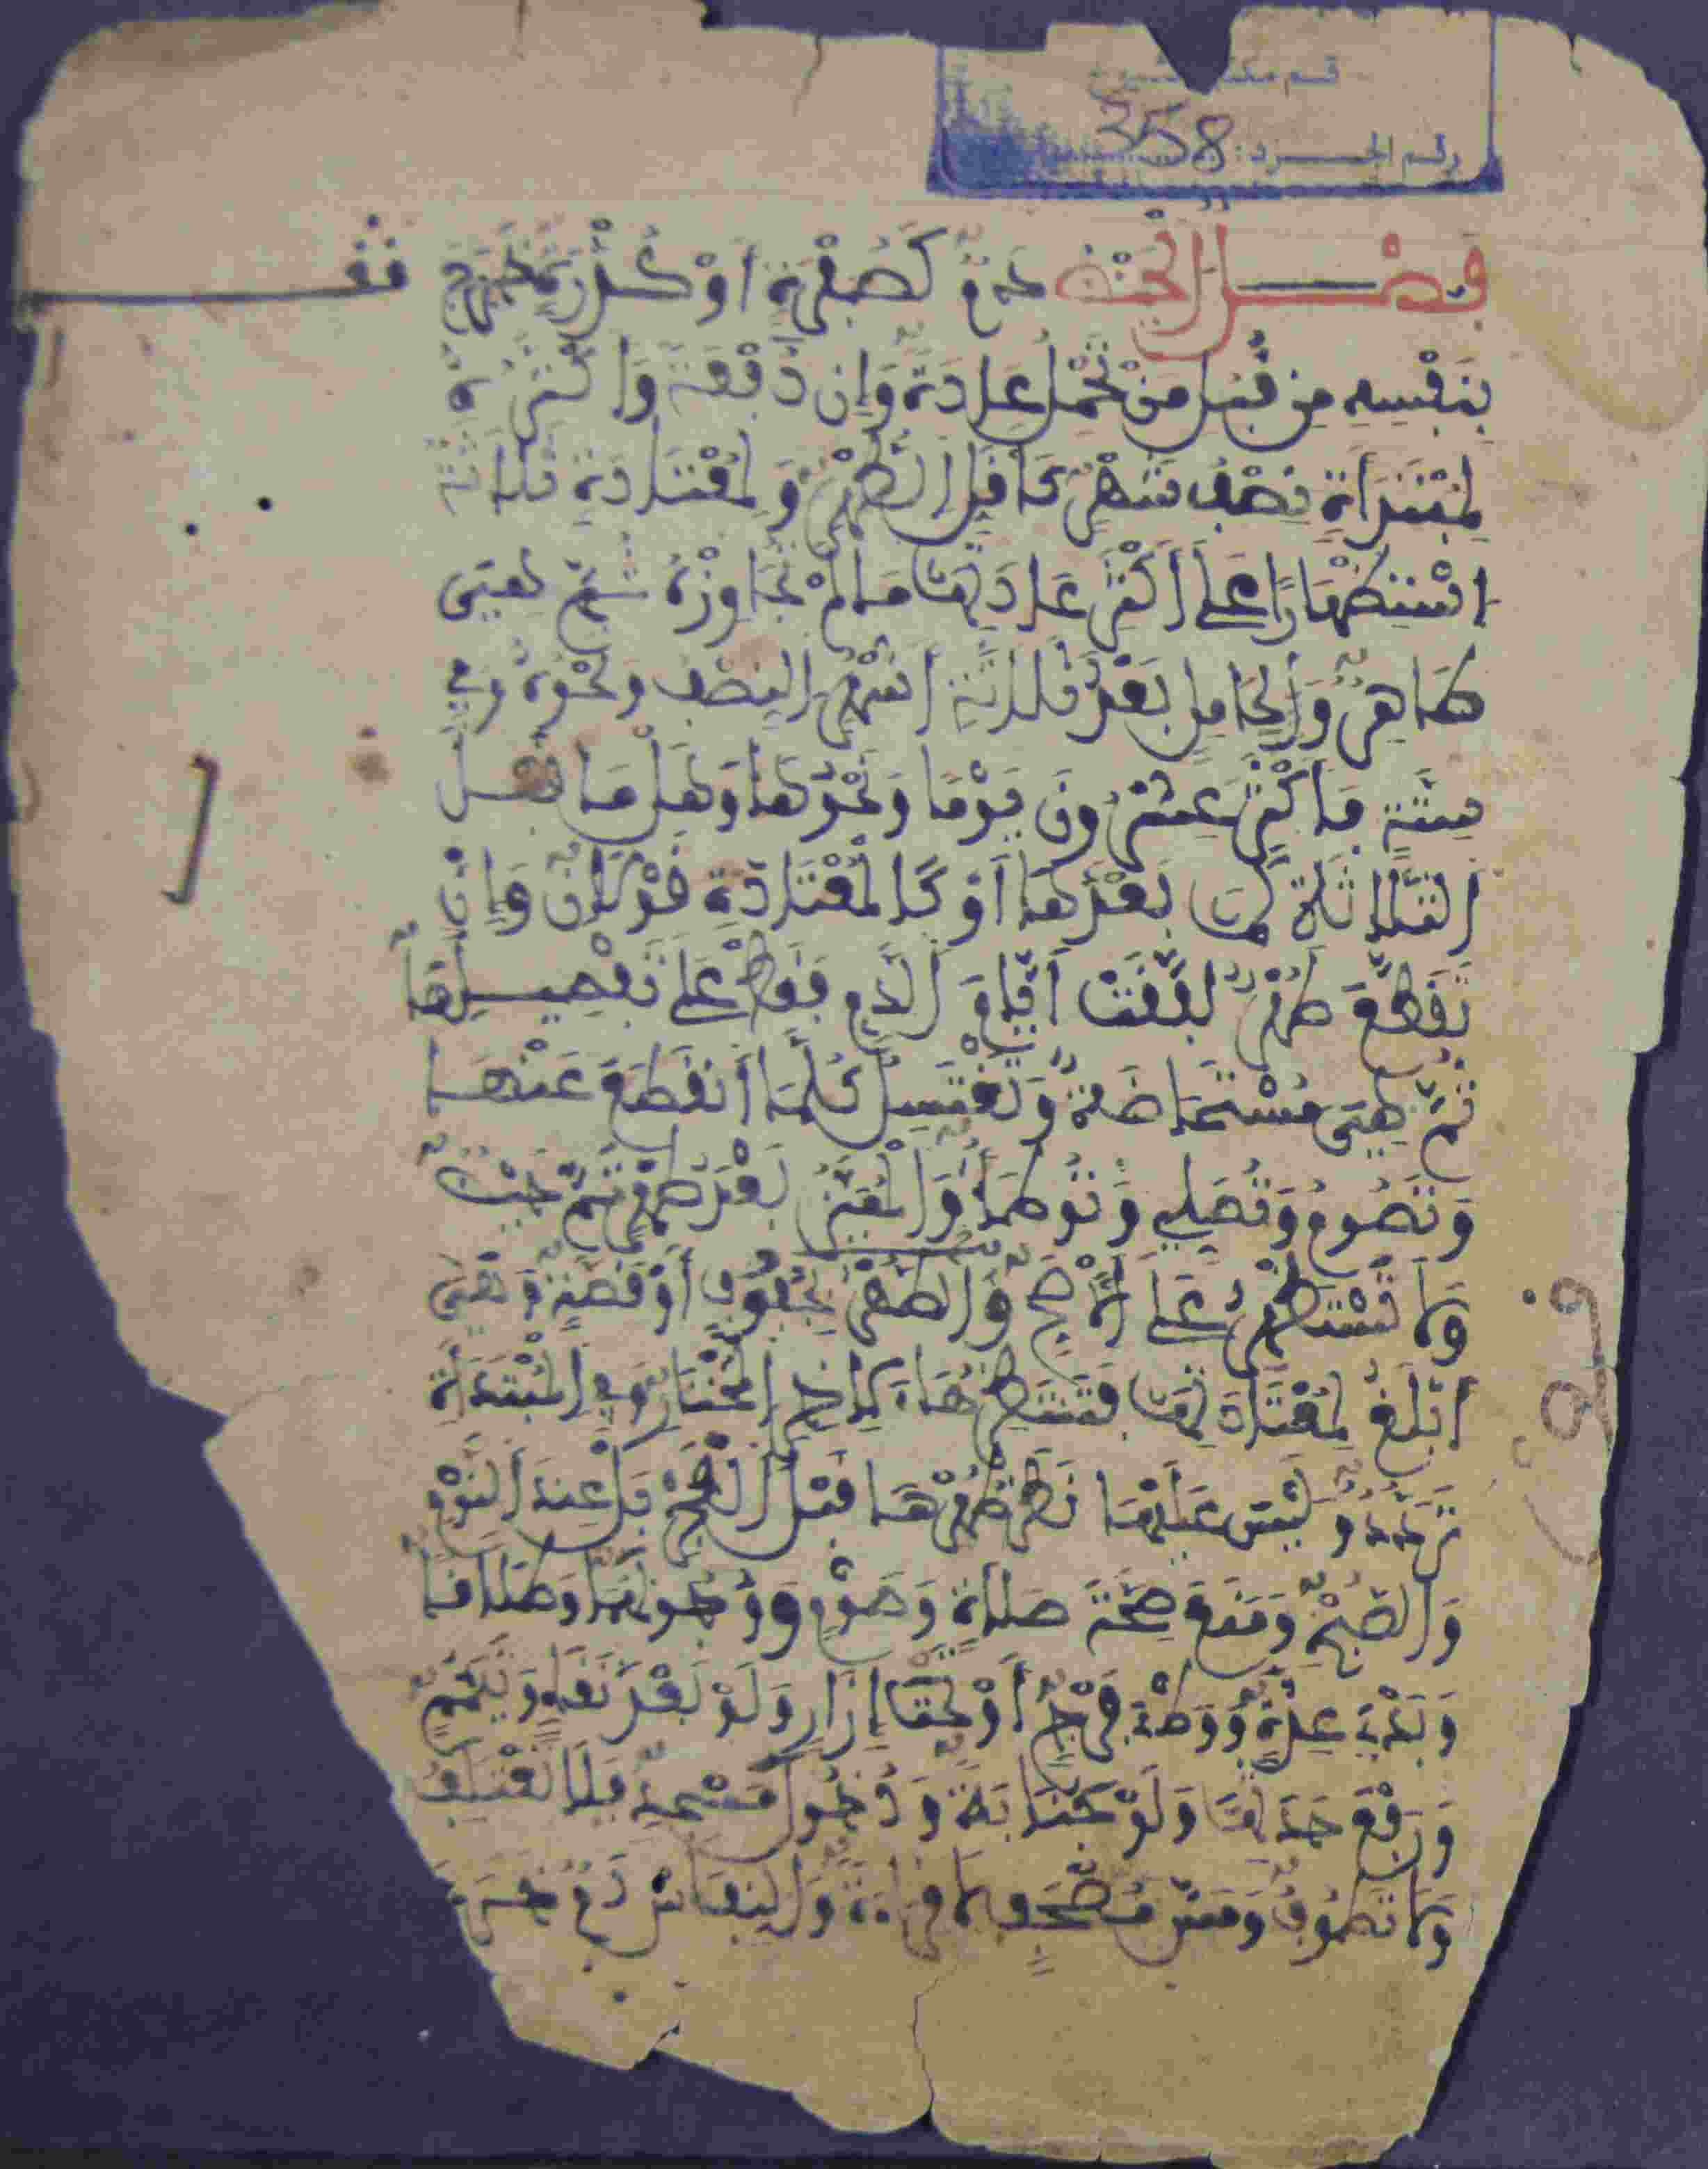 قسم
رقم الجرد: 358
فصل الحيض دم كصفرة أو كدرة خرج
بنفسه من قبل من تحمل عادة وإن دفعة وأكثره
لمبتدأة نصف شهر كأقل الطهر ولمعتادة ثلاثة
استظهارا على أكثر عادتها ما لم تجاوزه ثم هي
طاهر ولحامل بعد ثلاثة أشهر النصف ونحوه وفي
ستة فأكثر عشرون يوما ونحوها وهل ما قبل
الثلاثة كما بعدها أو كالمعتادة قولان وإن
تقطع طهر لفقت أيام الدم فقط على تفصيلها
ثم هي مستحاضة وتغتسل كلما انقطع عنها
وتصوم وتصلي وتوطأ والمميز بعد طهر تم حيض
ولا تستظهر على الأصح والطهر بجفوف أو قصة وهي
أبلغ لمعتادتها فتنتظرها لآخر المختار وفي المبتدأة
تردد وليس عليها نظر طهرها قبل الفجر بل عند النوم
والصبح ومنع صحة صلاة وصوم ووجوبهما وطلاقا
وبدء عدة ووطء فرج أو تحت إزار ولو بعد نقاء وتيمم
ورفع حدثها ولو جنابة ودخول مسجد فلا تعتكف
ولا تطوف ومس مصحف لا قراءة والنفاس دم خرج